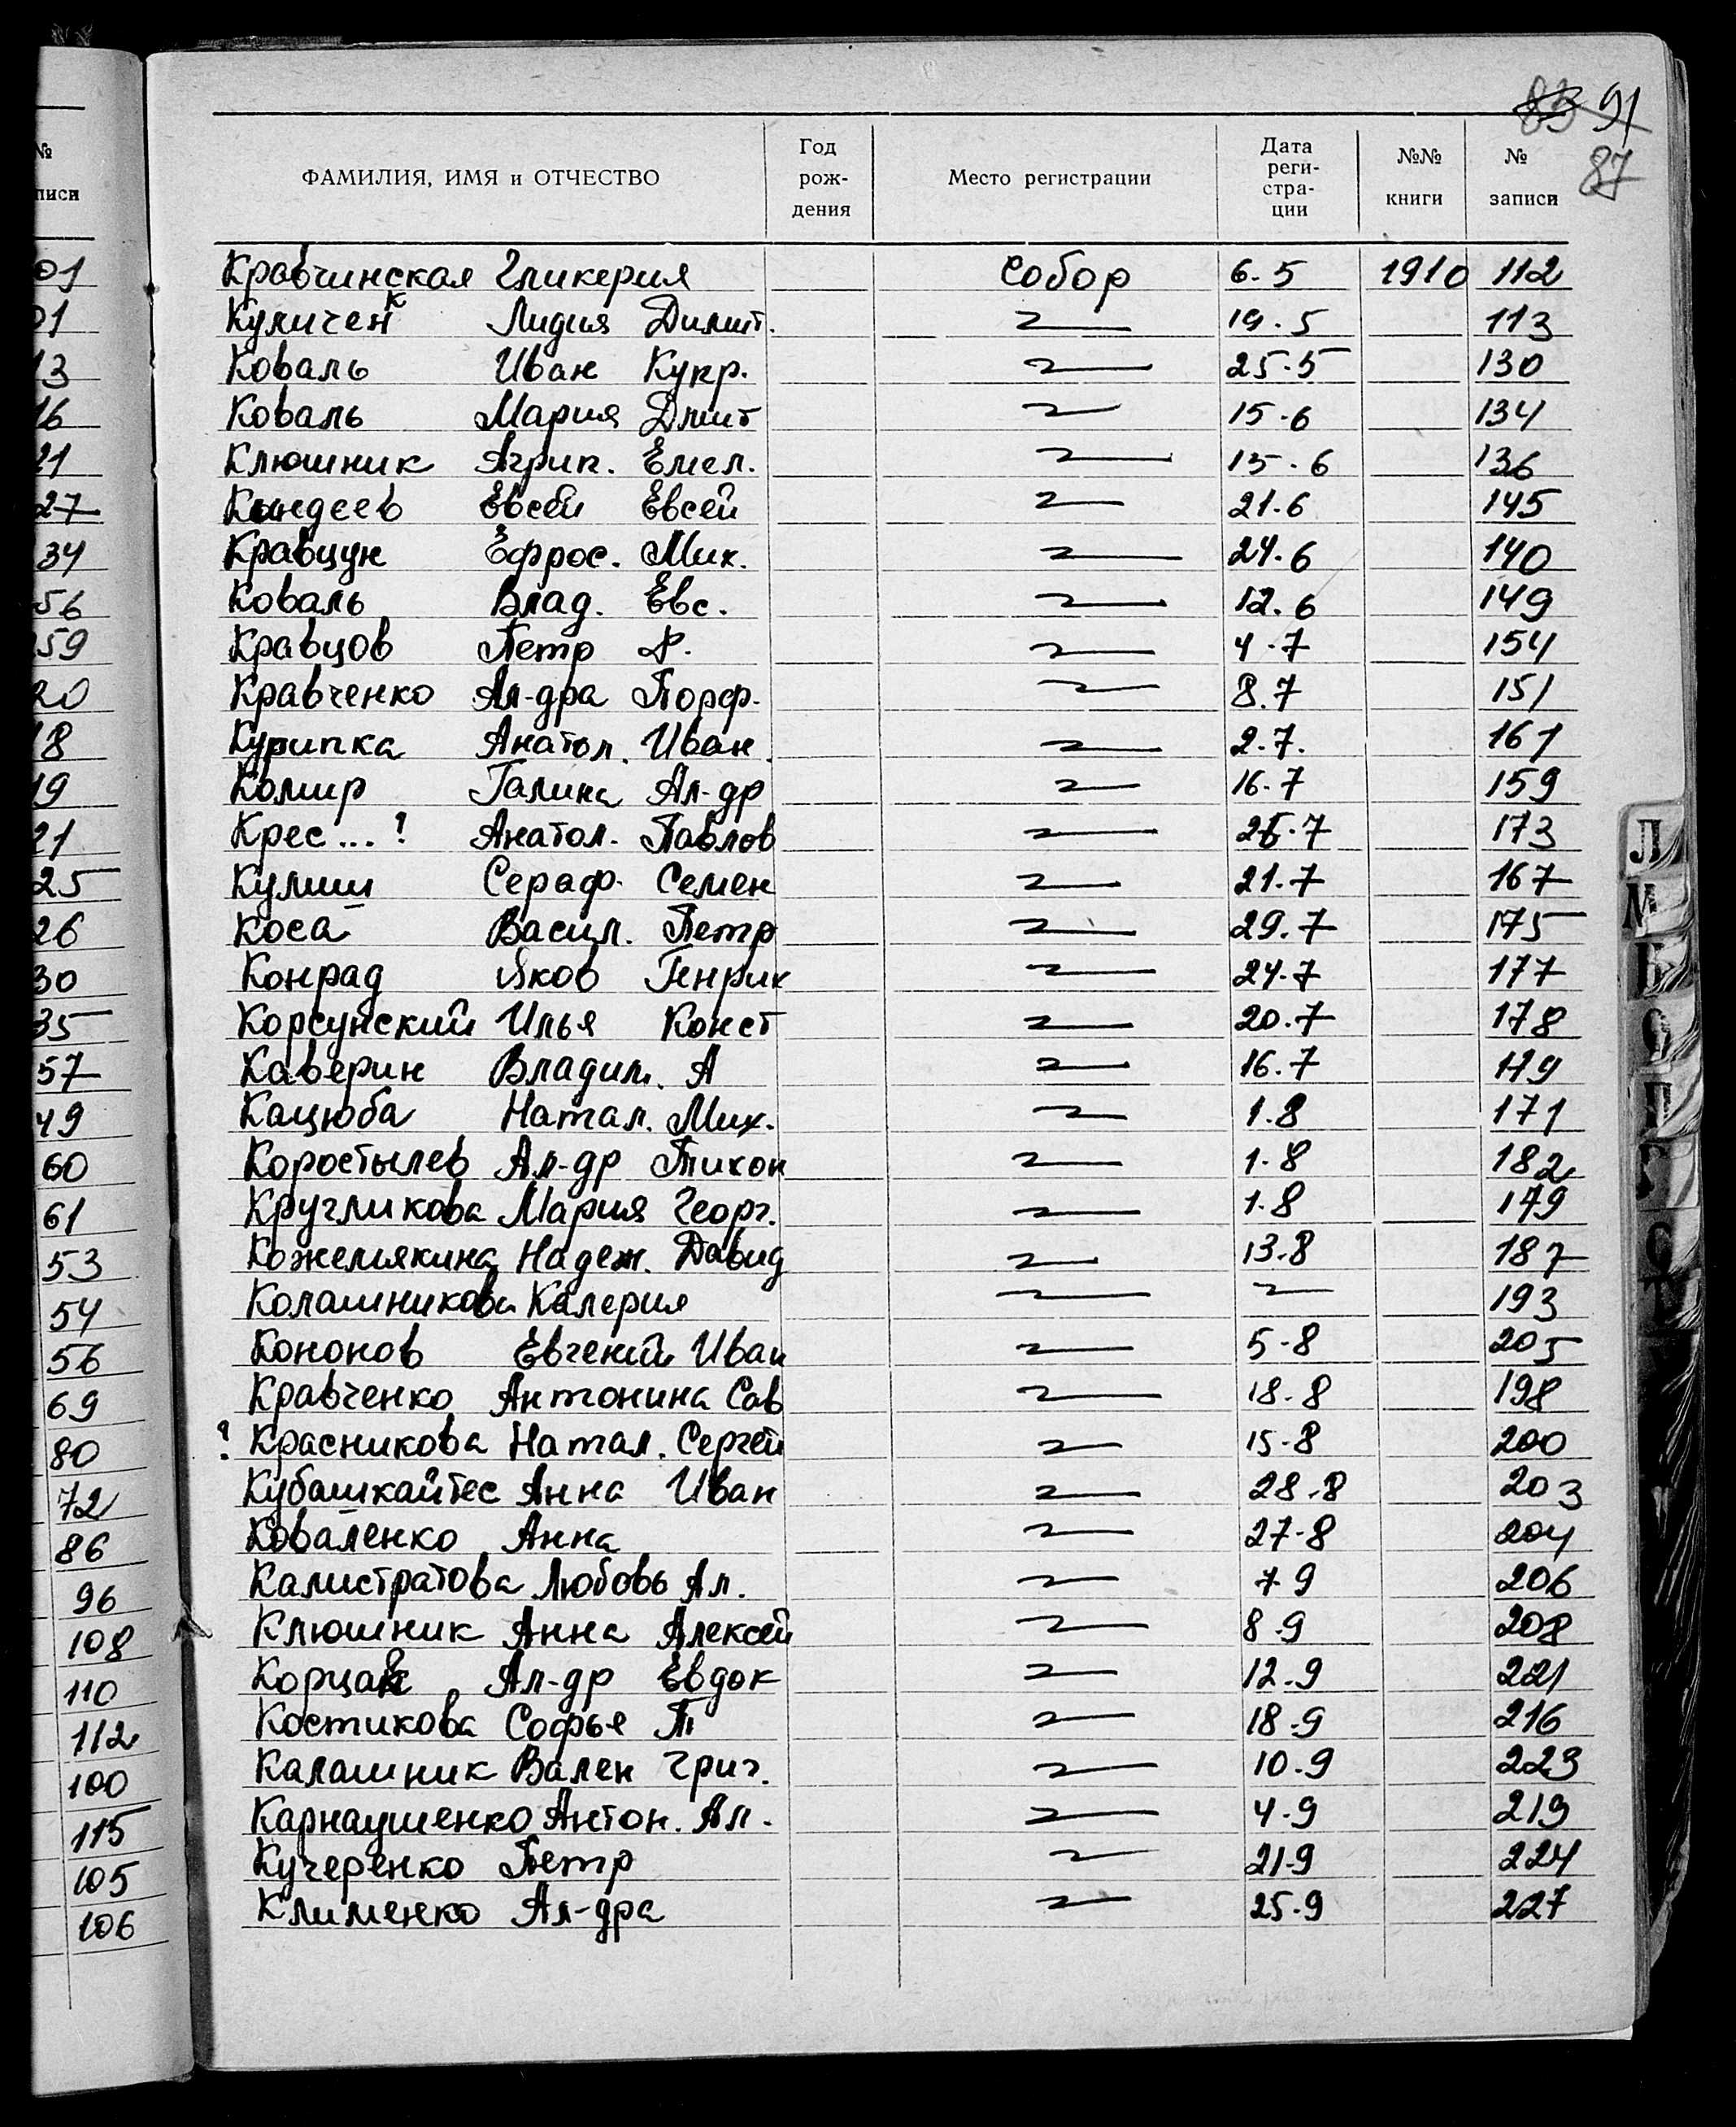 83 91
87
ФАМИЛИЯ, ИМЯ и ОТЧЕСТВО Год рождения Место регистрации Дата регистрации №№ книги № записи
Кравчинская Гликерия Собор 6.5 1910 112
Куличенк Лидия Димит. 19.5 113
Коваль Иван Купр. 25.5 130
Коваль Мария Дмит 15.6 134
Клюшник Агрип. Емел. 15.6 136
Евсей Евсей 21.6 145
Кравцун Ефрос. Мих. 24.6 140
Коваль Влад. Евс. 12.6 149
Кравцов Петр Ф. 4.7 154
Кравченко Ал-дра Порф. 8.7 151
Курипка Анатол. Иван. 2.7. 161
Комир Галина Ал-др 16.7 159
Крес...? Анатол. Павлов 173
Кулиш Сераф. Семен 21.7 167
Коса Васил. Петр 29.7 175
Конрад Яков Генрих 24.7 177
Корсунский Илья Конст 20.7 178
Каверин Владим. А 16.7
Кацюба Натал. Мих. 1.8 171
Коростылев Ал-др Тихон 1.8 182
Кругликова Мария Георг. 1.8 179
Кожемякина Надеж. Давид 13.8 187
Колашникова Калерия 193
Кононов Евгений Иван 5-8 205
Кравченко Антонина Сав 18.8 198
? Красникова Натал. Сергей 15-8 200
Кубашкайтес Анна Иван 28.8 203
Коваленко Анна 27-8 204
Калистратова Любовь Ал. 7 9 206
Клюшник Анна Алексей 8.9 208
Ал-др Евдок 12.9 221
Костикова Софья П 18.9 216
Калашник Вален Григ. 10.9 223
Карнаушенко Антон. Ал. 4.9 219
Кучеренко Петр 21.9 224
Клименко Ал-дра 25.9 227